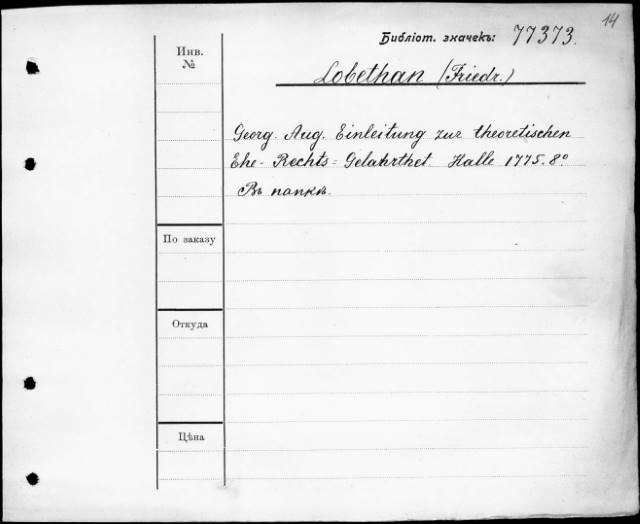 14
Библіот. значекъ: 77373.
Инв.
№
Lobethan (Friedr.)
Georg. Aug. Einleitung zur theoretischen
Ehe- Rechts= Gelahrthet. Halle 1775. 8º
Въ папкѣ.
По заказу
Откуда
Цѣна